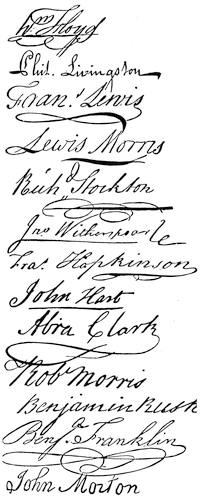 Wm Floyd
Phil. Livingston
Fran.s Lewis
Lewis Morris
Richd Stockton
Jno Witherspoon
Fras. Hopkinson
John Hart
Abra Clark
Robt Morris
Benjamin Rush
Benj.a Franklin
John Morton